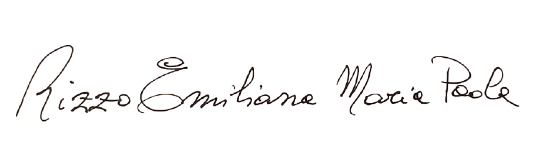 Rizzo Emiliana Maria Paola